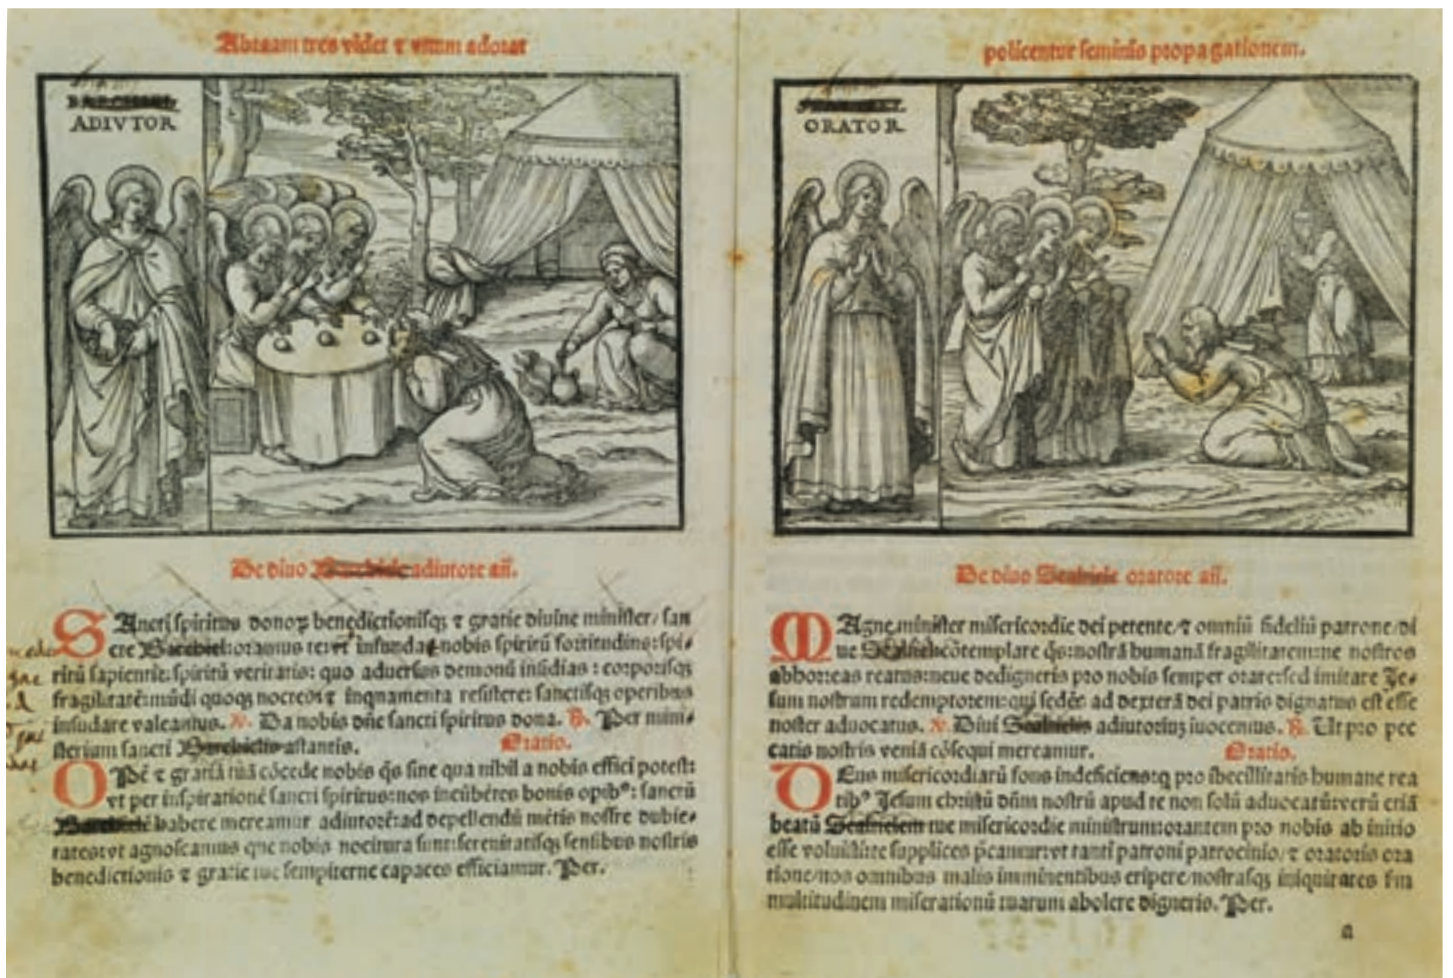 Abraam tres videt ⁊ vnum adorat
ADIVTOR
De diuo adiutore añ.
SAncti spiritus donoꝝ benedictionisqꝫ ⁊ gratie diuine minister/ san
cte oramus te: vt infundas nobis spiritū fortitudins: spi⸗
ritū sapientie: spiritū veritatis: quo aduersus demonū insidias: corporisqꝫ
fragilitatē: mūdi quoqꝫ ⁊ inqnamenta resistere: sanctisqꝫ operibus
insudare valeamus. ℣. Da nobis dñe sancti spiritus dona. ℟. Per mini⸗
sterium sancti astantis. Oratio.
OPē ⁊ gratiā tuā cōcede nobis q̄s sine qua nihil a nobis effici potest:
vt per inspirationē sancti spiritus: nos incūbētes bonis opibꝰ: sanctū
habere mereamur adiutorē: ad depellendū mētis nostre dubie⸗
tates: vt agnoscamus que nobis nocitura sunt: serenitatisqꝫ sensibus nostris
benedictionis ⁊ gratie tue sempiterne capaces efficiamur. Per.
policentur seminis propagationem.
ORATOR
De diuo Sealtiele oratore añ.
MAgne minister misericordie dei petente/ ⁊ omniū fideliū patrone/ di
ue cōtemplare q̄s: nostrā humanā fragilitatem: ne nostros
abhorreas reatus: neue dedigneris pro nobis semper orare: sed imitare Je⸗
sum nostrum redemptorem: qui sedēs ad dexterā dei patris dignatus est esse
noster aduocatus. ℣. Diui adiutoriū iuocemus. ℟. Ut pro pec
catis nostris veniā cōsequi mereamur. Oratio.
DEus misericordiarū fons indeficiens: q pro ībecillitatis humane rea
tibꝰ Jesum christū dñm nostrū apud te non solū aduocatū: verū etiā
beatū Sealtielem tue misericordie ministrum: orantem pro nobis ab initio
esse voluisti: te supplices p̄camur: vt tanti patroni patrocinio/ ⁊ oratoris ora
tione/ nos omnibus malis imminentibus eripere/ nostrasqꝫ iniquitates fm
multitudinem miserationū tuarum abolere digneris. Per.
a